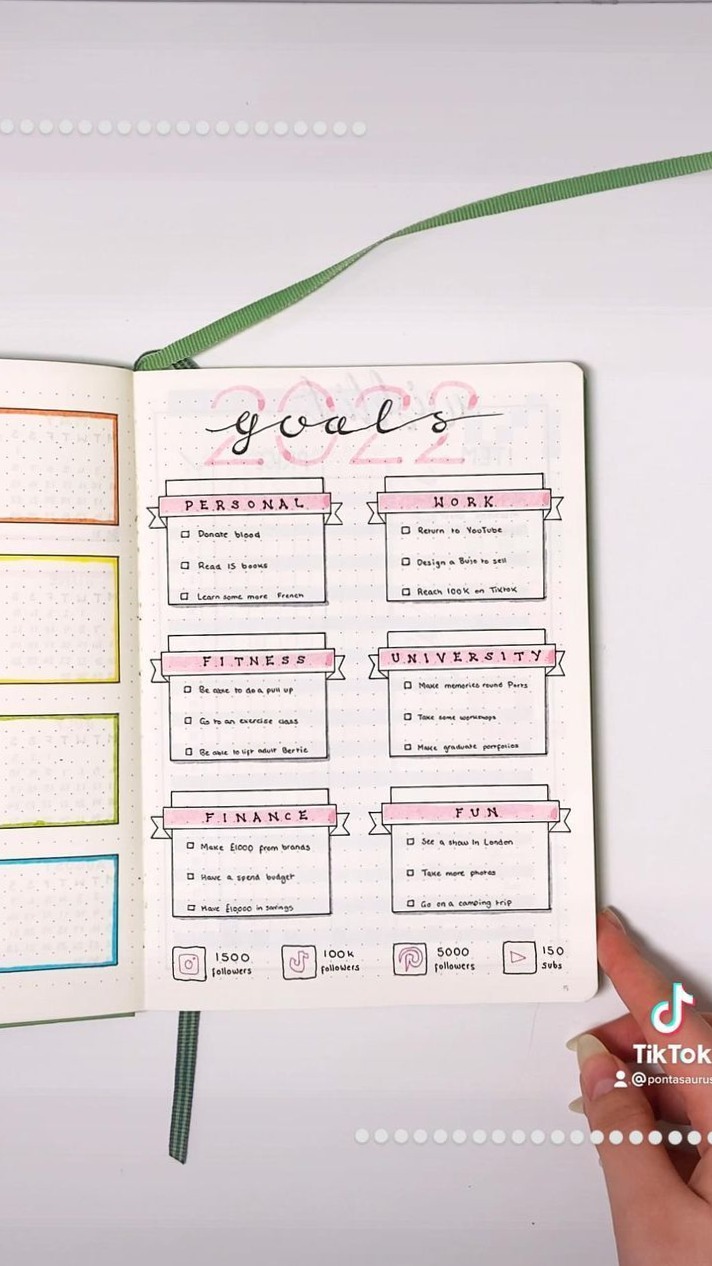 2022
goals
PERSONAL
Donate blood
Read 15 books
Learn some more French
WORK
Return to YouTube
Design a Bujo to sell
Reach 100K on Tiktok
FITNESS
Be able to do a pull up
Go to an exercise class
Be able to lift adult Bertie
UNIVERSITY
Make memories round Paris
Take some workshops
Make graduate portfolios
FINANCE
Make £1000 from brands
Have a spend budget
Have £10,000 in savings
FUN
See a show in London
Take more photos
Go on a camping trip
1500
followers
100k
followers
5000
followers
150
subs
TikTok
@pontasaurus